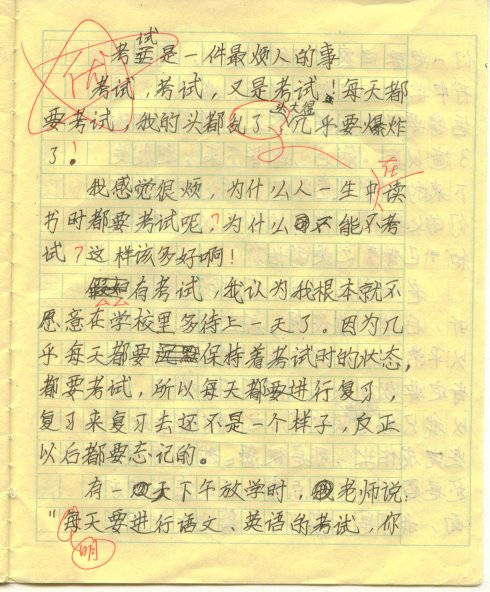 考试是一件最烦人的事
考试，考试，又是考试！每天都
要考试，我的头都乱了，几乎要爆炸
了！
我感觉很烦，为什么人一生中在读
书时都要考试呢？为什么不能不考
试？这样该多好啊！
有考试，我认为我根本就不
愿意在学校里多待上一天了。因为几
乎每天都要保持着考试时的状态，
都要考试，所以每天都要进行复习，
复习来复习去还不是一个样子，反正
以后都要忘记的。
有一天下午放学时，老师说，
“每天要进行语文、英语的考试，你
明